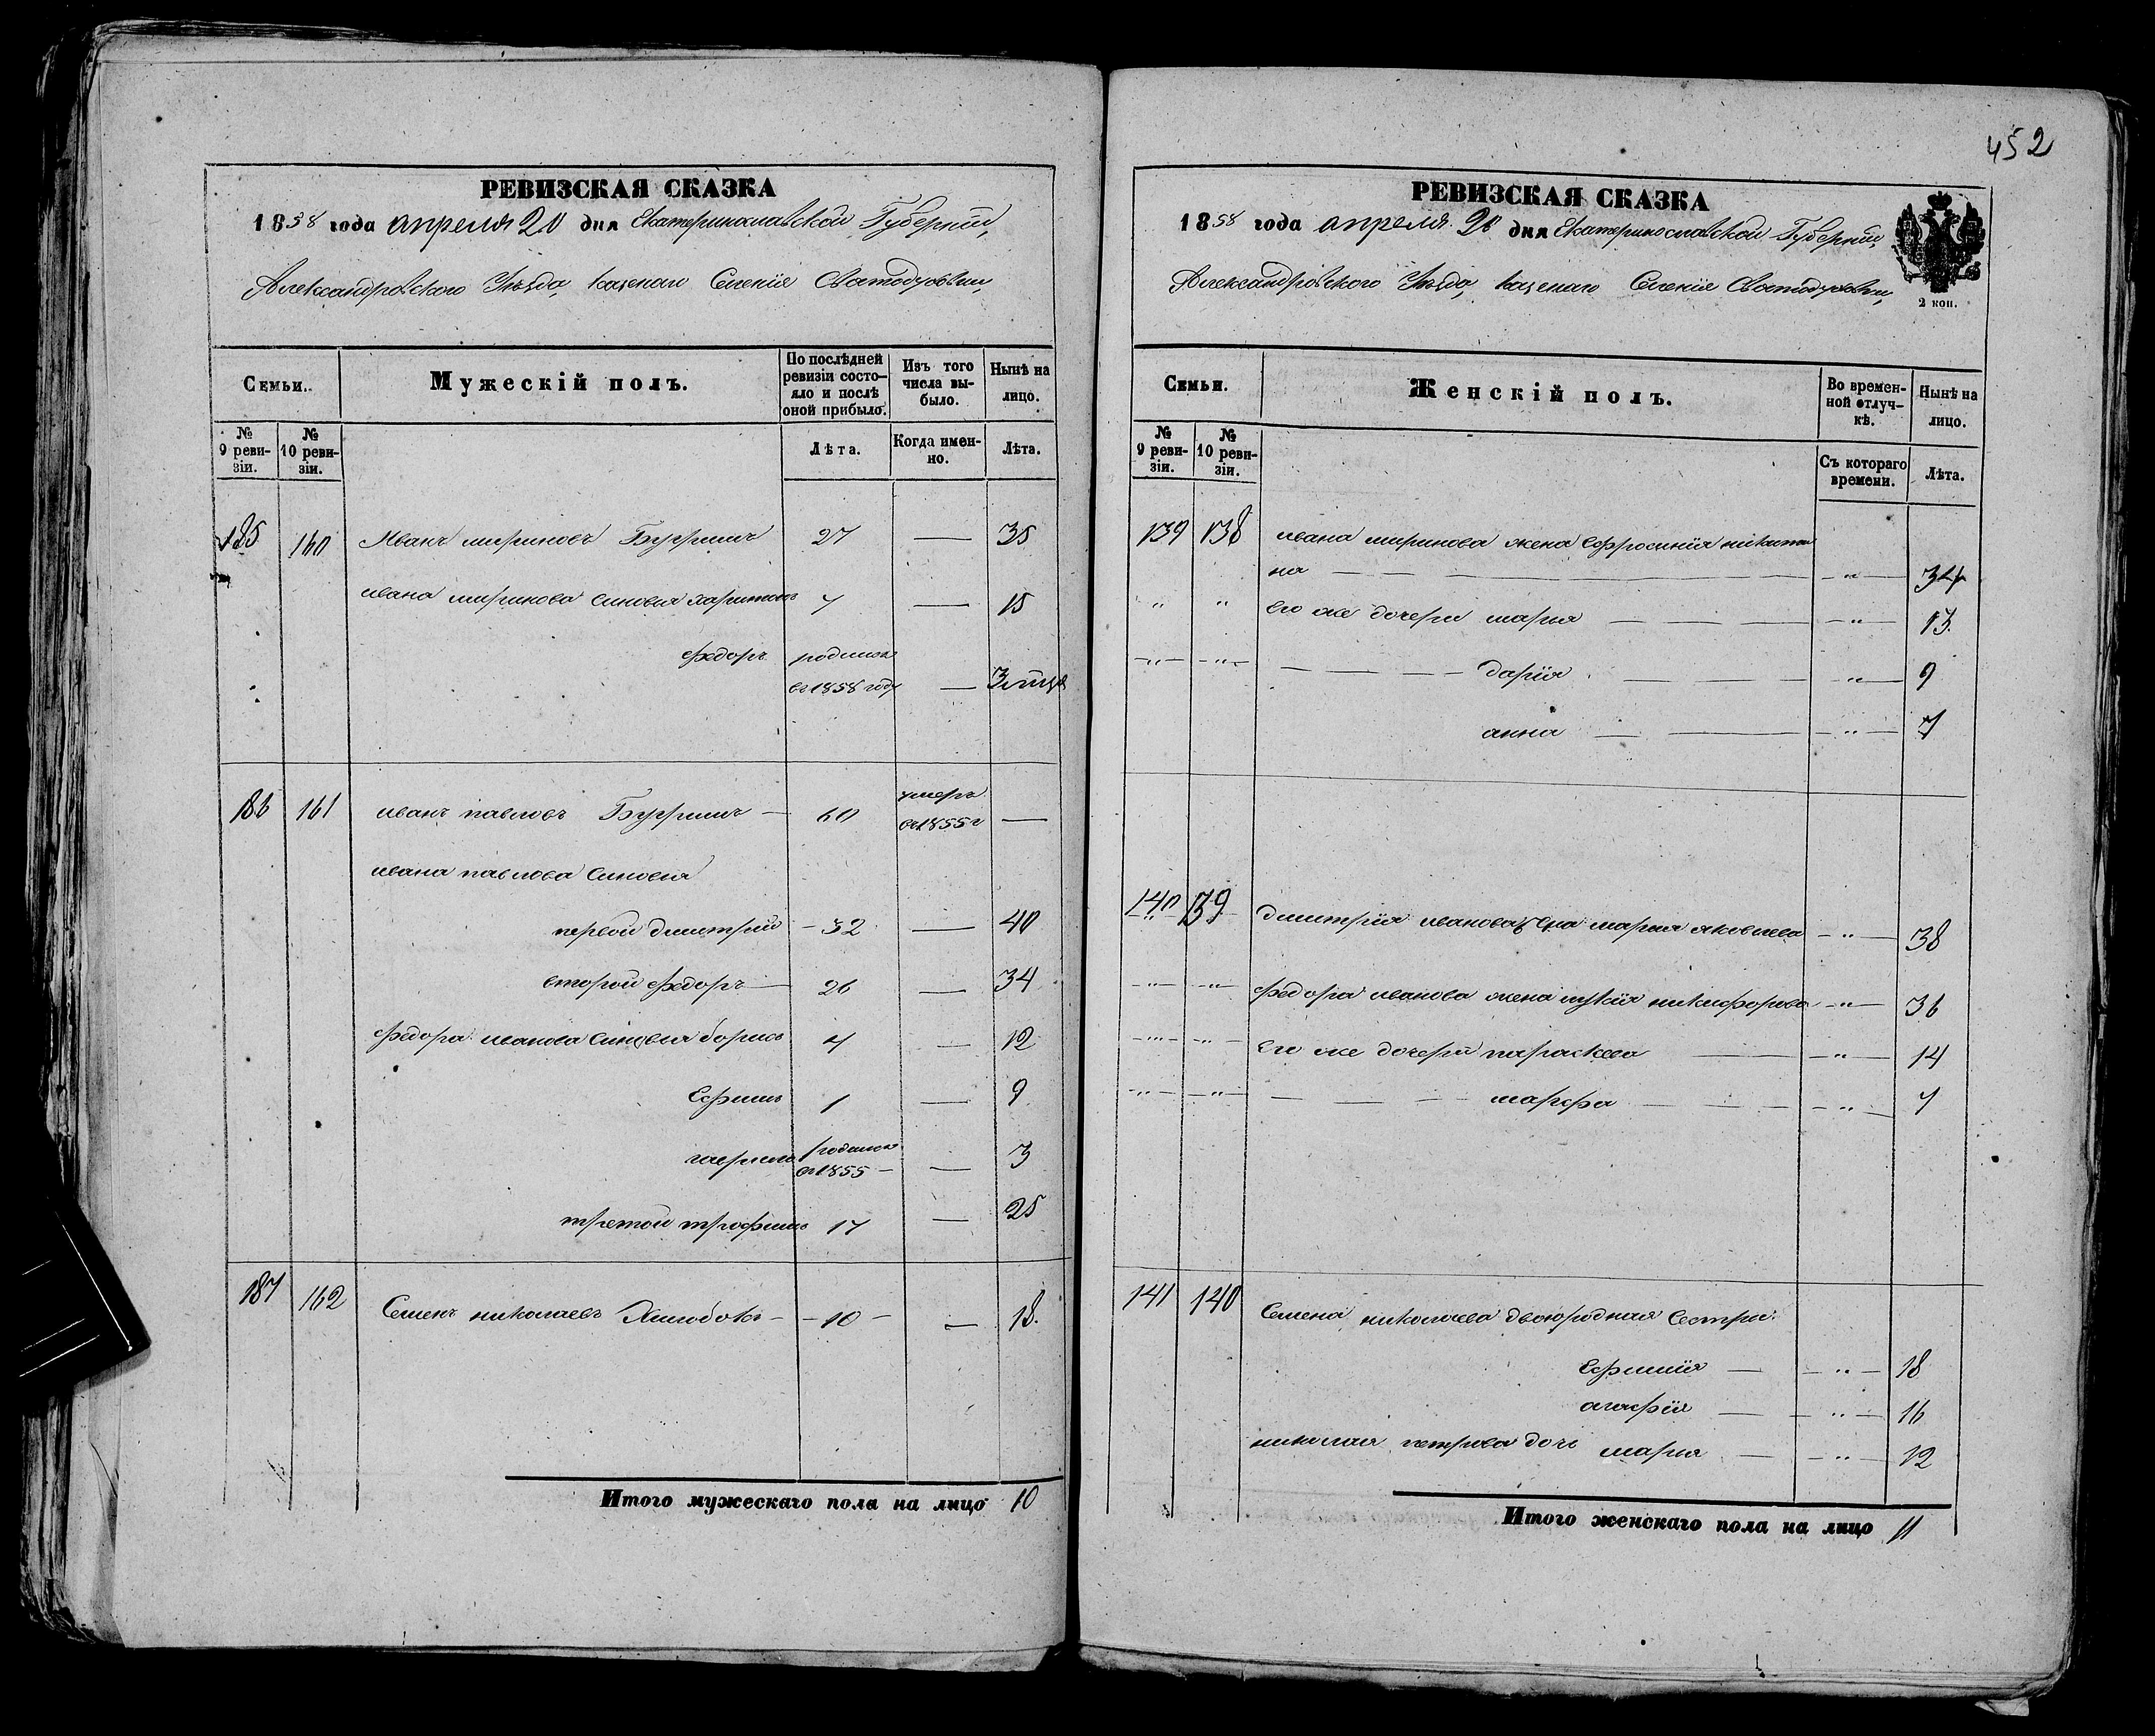 452
РЕВИЗСКАЯ СКАЗКА
1858 года апреля 20 дня Екатеринославской Губернiи,
Александровского Уѣзда, казенаго Селенiя Святодуховки,
Семьи.
Мужескiй полъ.
По послѣдней ревизiи состояло и послѣ оной прибыло.
Изъ того числа выбыло.
Нынѣ на лицо.
№ 9 ревизiи.
№ 10 ревизiи.
Лѣта.
Когда именно.
Лѣта.
185 160 Иванъ миринов 27 — 35
ивана миринова синовья харитонъ 7 — 15
федоръ родился
въ 1858 году — 3 месяца
186 161 иванъ павловъ — 60 умеръ въ 1855 г —
ивана павлова синовья
первой дмитрий — 32 — 40
второй федоръ — 26 — 34
федора иванова синовья борисъ 4 — 12
Ефимъ 1 — 9
гаврило родился въ 1855 — — 3
третой трофимъ 17 — 25
187 162 Семенъ николаевъ — 10 — — 18.
Итого мужескаго пола на лицо 10
РЕВИЗСКАЯ СКАЗКА
1858 года апреля 20 дня Екатеринославской Губернiи,
Александровского Уѣзда, казенаго Селенiя Святодуховки,
2 коп.
Семьи.
Женскiй полъ.
Во временной отлучкѣ.
Нынѣ на лицо.
№ 9 ревизiи.
№ 10 ревизiи.
Съ котораго времени.
Лѣта.
139 138 ивана миринова жена Ефросинiя никити
на — — — — — „ — 34
„ „ его же дочери марья — — — — „ — 13.
— „ — — „ — — — — дарiя — — — „ — 9
анна — — — „ — 7
140 139 дмитрiя иванова жена марья яковлева — „ — 38
— „ — — „ — федора иванова жена никифорова — „ — 36
— „ — — „ — его же дочери параскева — — „ — 14
— „ — — „ — — — — марфа — — — — „ — 7
141 140 Семена николаева двоюродная Сестри.
Ефимiя — — „ — 18
агафiя — — „ — 16
николая петрова дочь марья — — „ — 12
Итого женскаго пола на лицо 11